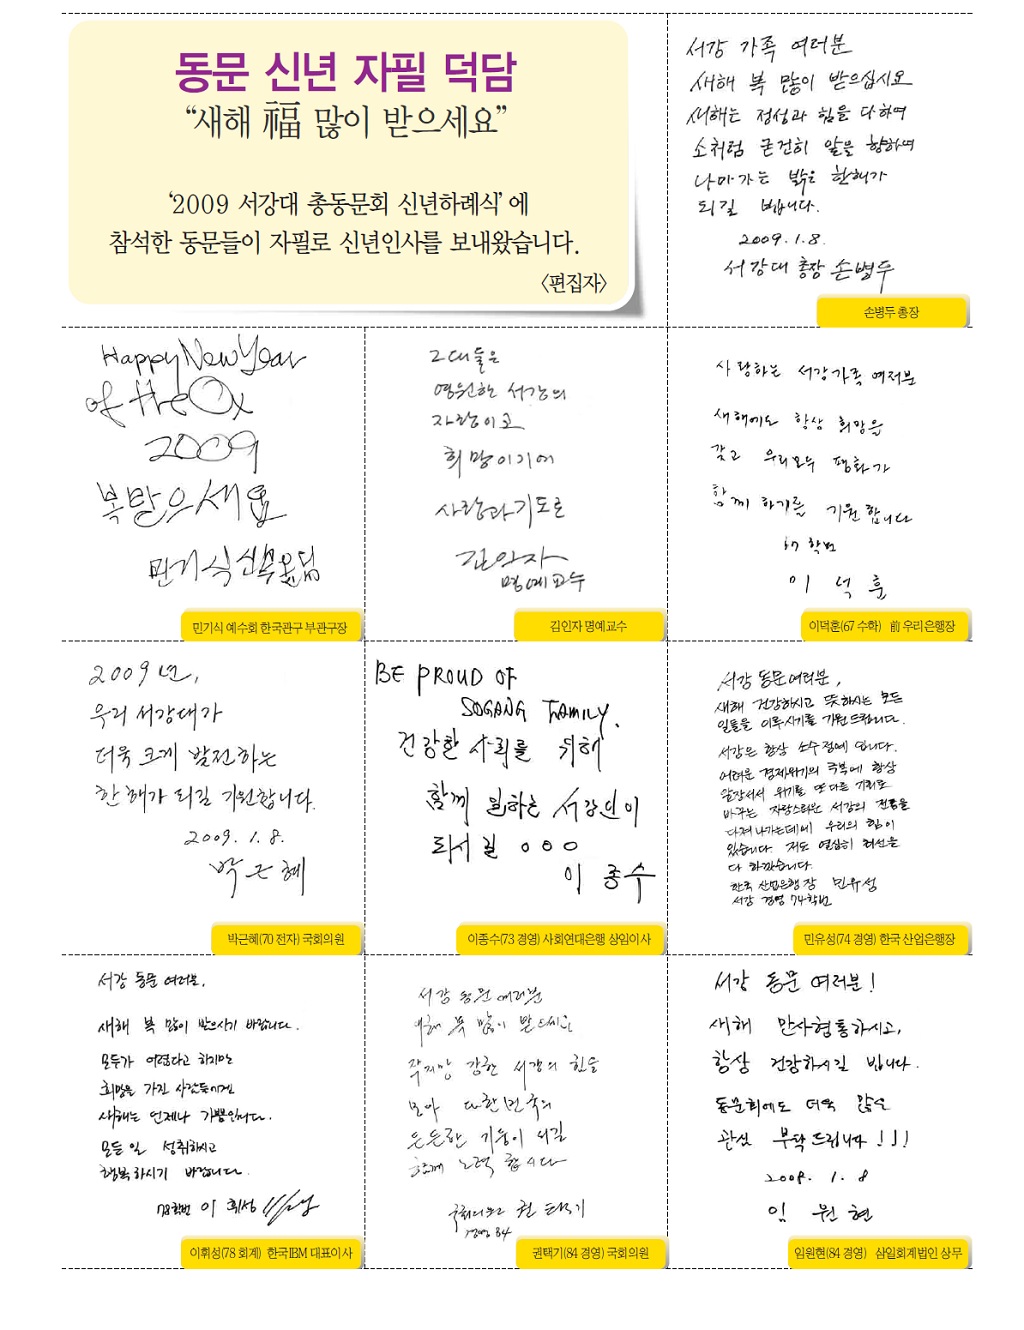 동문 신년 자필 덕담
“새해 福 많이 받으세요”
‘2009 서강대 총동문회 신년하례식’에
참석한 동문들이 자필로 신년인사를 보내왔습니다.
〈편집자〉
서강 가족 여러분
새해 복 많이 받으십시요
새해는 정성과 힘을 다하여
소처럼 굳건히 앞을 향하여
나아가는 밝은 한해가
되길 빕니다.
2009. 1. 8.
서강대 총장 손병두
손병두 총장
Happy New Year
of the Ox
2009
복받으세요
민기식 신부 올림
민기식 예수회 한국관구 부관구장
그대들은
영원한 서강의
자랑이고
희망이기에
사랑과 기도로
김인자
명예교수
김인자 명예교수
사랑하는 서강가족 여러분
새해에도 항상 희망을
갖고 우리모두 평화가
함께 하기를 기원합니다
67 학번
이덕훈
이덕훈(67 수학) 前 우리은행장
2009년,
우리 서강대가
더욱 크게 발전하는
한해가 되길 기원합니다.
2009. 1. 8.
박근혜
박근혜(70 전자) 국회의원
BE PROUD OF
SOGANG FAMILY.
건강한 사회를 위해
함께 일하는 서강인이
되시길 ○○○
이종수
이종수(73 경영) 사회연대은행 상임이사
서강 동문여러분,
새해 건강하시고 뜻하시는 모든
일들을 이루시기를 기원드립니다.
서강은 항상 소수정예 입니다.
어려운 경제위기의 극복에 항상
앞장서서 위기를 또다른 기회로
바꾸는 자랑스러운 서강의 전통을
다져나가는데에 우리의 힘이
있습니다. 저도 열심히 최선을
다 하겠습니다.
한국 산업은행장 민유성
서강 경영 74학번
민유성(74 경영) 한국 산업은행장
서강 동문 여러분,
새해 복 많이 받으시기 바랍니다.
모두가 어렵다고 하지만
희망을 가진 사람들에겐
새해는 언제나 기쁨입니다.
모든 일 성취하시고
행복하시기 바랍니다.
78학번 이휘성
이휘성(78 회계) 한국IBM 대표이사
서강 동문 여러분
새해 복 많이 받으세요
작지만 강한 서강의 힘을
모아 대한민국의
든든한 기둥이 되길
함께 노력 합시다
국회의원 권택기
경영 84
권택기(84 경영) 국회의원
서강 동문 여러분!
새해 만사형통하시고,
항상 건강하시길 빕니다.
동문회에도 더욱 많은
관심 부탁드립니다!!!
2009. 1. 8
임원현
임원현(84 경영) 삼일회계법인 상무